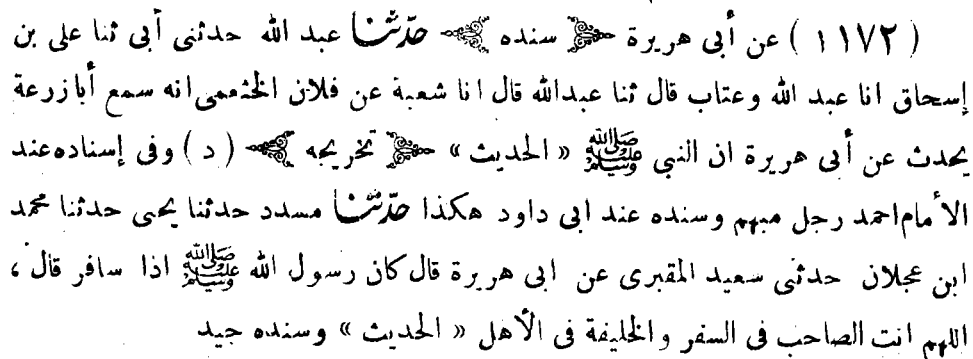 ( ١١٧٢ ) عن أبى هريرة ﴿ سنده ﴾ حَدَّثَنَا عبد الله حدثنى أبى ثنا على بن
إسحاق انا عبد الله وعتاب قال ثنا عبدالله قال انا شعبة عن فلان الخثعمى انه سمع أبازرعة
يحدث عن أبى هريرة ان النبى ﷺ « الحديث » ﴿ تخريجه ﴾ ( د ) وفى إسناده عند
الأمام احمد رجل مبهم وسنده عند ابى داود هكذا حَدَّثَنَا مسدد حدثنا يحيى حدثنا محمد
ابن عجلان حدثنى سعيد المقبرى عن ابى هريرة قال كان رسول الله ﷺ اذا سافر قال ،
اللهم انت الصاحب فى السفر والخليفة فى الأهل « الحديث » وسنده جيد